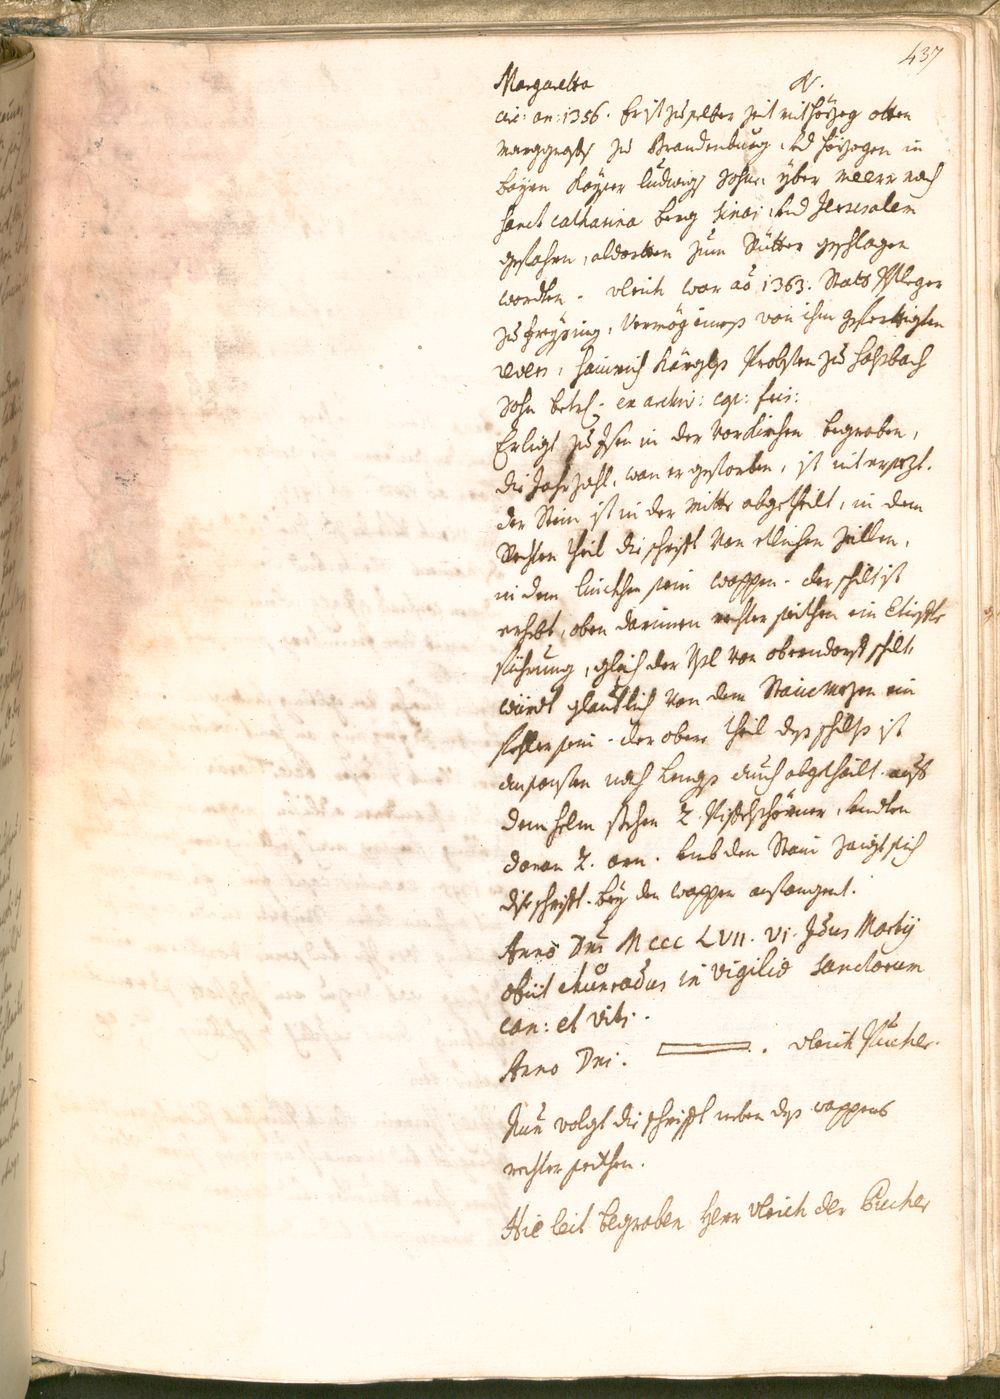 437
Margaretta N.
circ: an: 1356. Er ist zu selber zeit mit Hörzog otten
Marggrafs zu Brandenburg vnd Hörzogen in
Bayrn Kayser ludwigs Sohne yber meerr nach
Sanct Catharina berg Sinai vnd Jerusalem
gefahren, aldortten zum Ritter geschlagen
wordten. Vlrich war aō 1363. Statt Pfleger
zu Freysing, Vermög eines von ihm gefertigten
revers, Hainrich Kärgls Probsten zu
Sohn betrf. ex archiv: fris:
Er ligt zu Isen in der Vorkirchen begraben,
die Jahrzahl, wan er gestorben, ist nit ersezt.
der Stein ist in der mitte abgetheilt, in dem
Rechten theil die schrifft Von etlichen Zeillen,
in dem linckhen sein wappen. der schilt ist
erhebt, oben darinnen rechter seithen ein
führung, gleich der Von obrendorff schilt,
würdt glaublich Von dem Stainmezen ein
fehler sein. der obere theil dess schilts ist
nach lengs durch abgetheilt. auf
dem helm stehen 2. Pifflshörner, an
daran 2. orn. Umb den Stain zaigt sich
dise schrifft. bey den wappen anfangent.
Anno Dni M ccc LVII. VI. Idus Martij
obiit Chunradus in vigilia sanctorum
can: et viti.
Anno Dni. . Vlrich Pucher.
Nun volgt die schrifft neben dess wappens
rechter seithen.
Hie leit begraben Herr Vlrich der Pucher